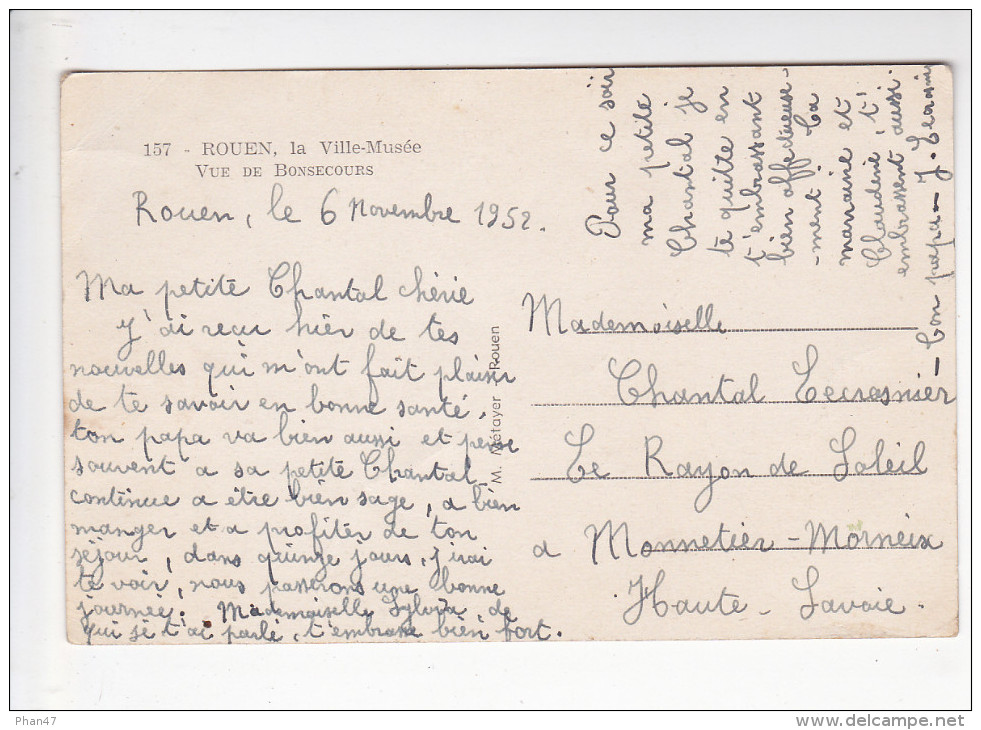 157 - ROUEN, la Ville-Musée
VUE DE BONSECOURS
Rouen, le 6 Novembre 1952.
Ma petite Chantal chérie
J'ai reçu hier de tes
nouvelles qui m'ont fait plaisir
de te savoir en bonne santé.
ton papa va bien aussi et pense
souvent a sa petite Chantal
continue a être bien sage, a bien
manger et a profiter de ton
séjour, dans quinze jours, j'irai
te voir, nous passerons une bonne
journée. Mademoiselle Sylvia, de
qui je t'ai parlé, t'embrasse bien fort.
Pour ce soir
ma petite
Chantal je
te quitte en
t'embrassant
bien affectueuse-
-ment. Ta
marraine et
Claudine t'
embrassent aussi
- Ton papa - J.
M. Métayer Rouen
Mademoiselle
Chantal Lecresnier
Le Rayon de Soleil
a Monnetier-Morneix
Haute-Savoie.
Phan47
www.delcampe.net